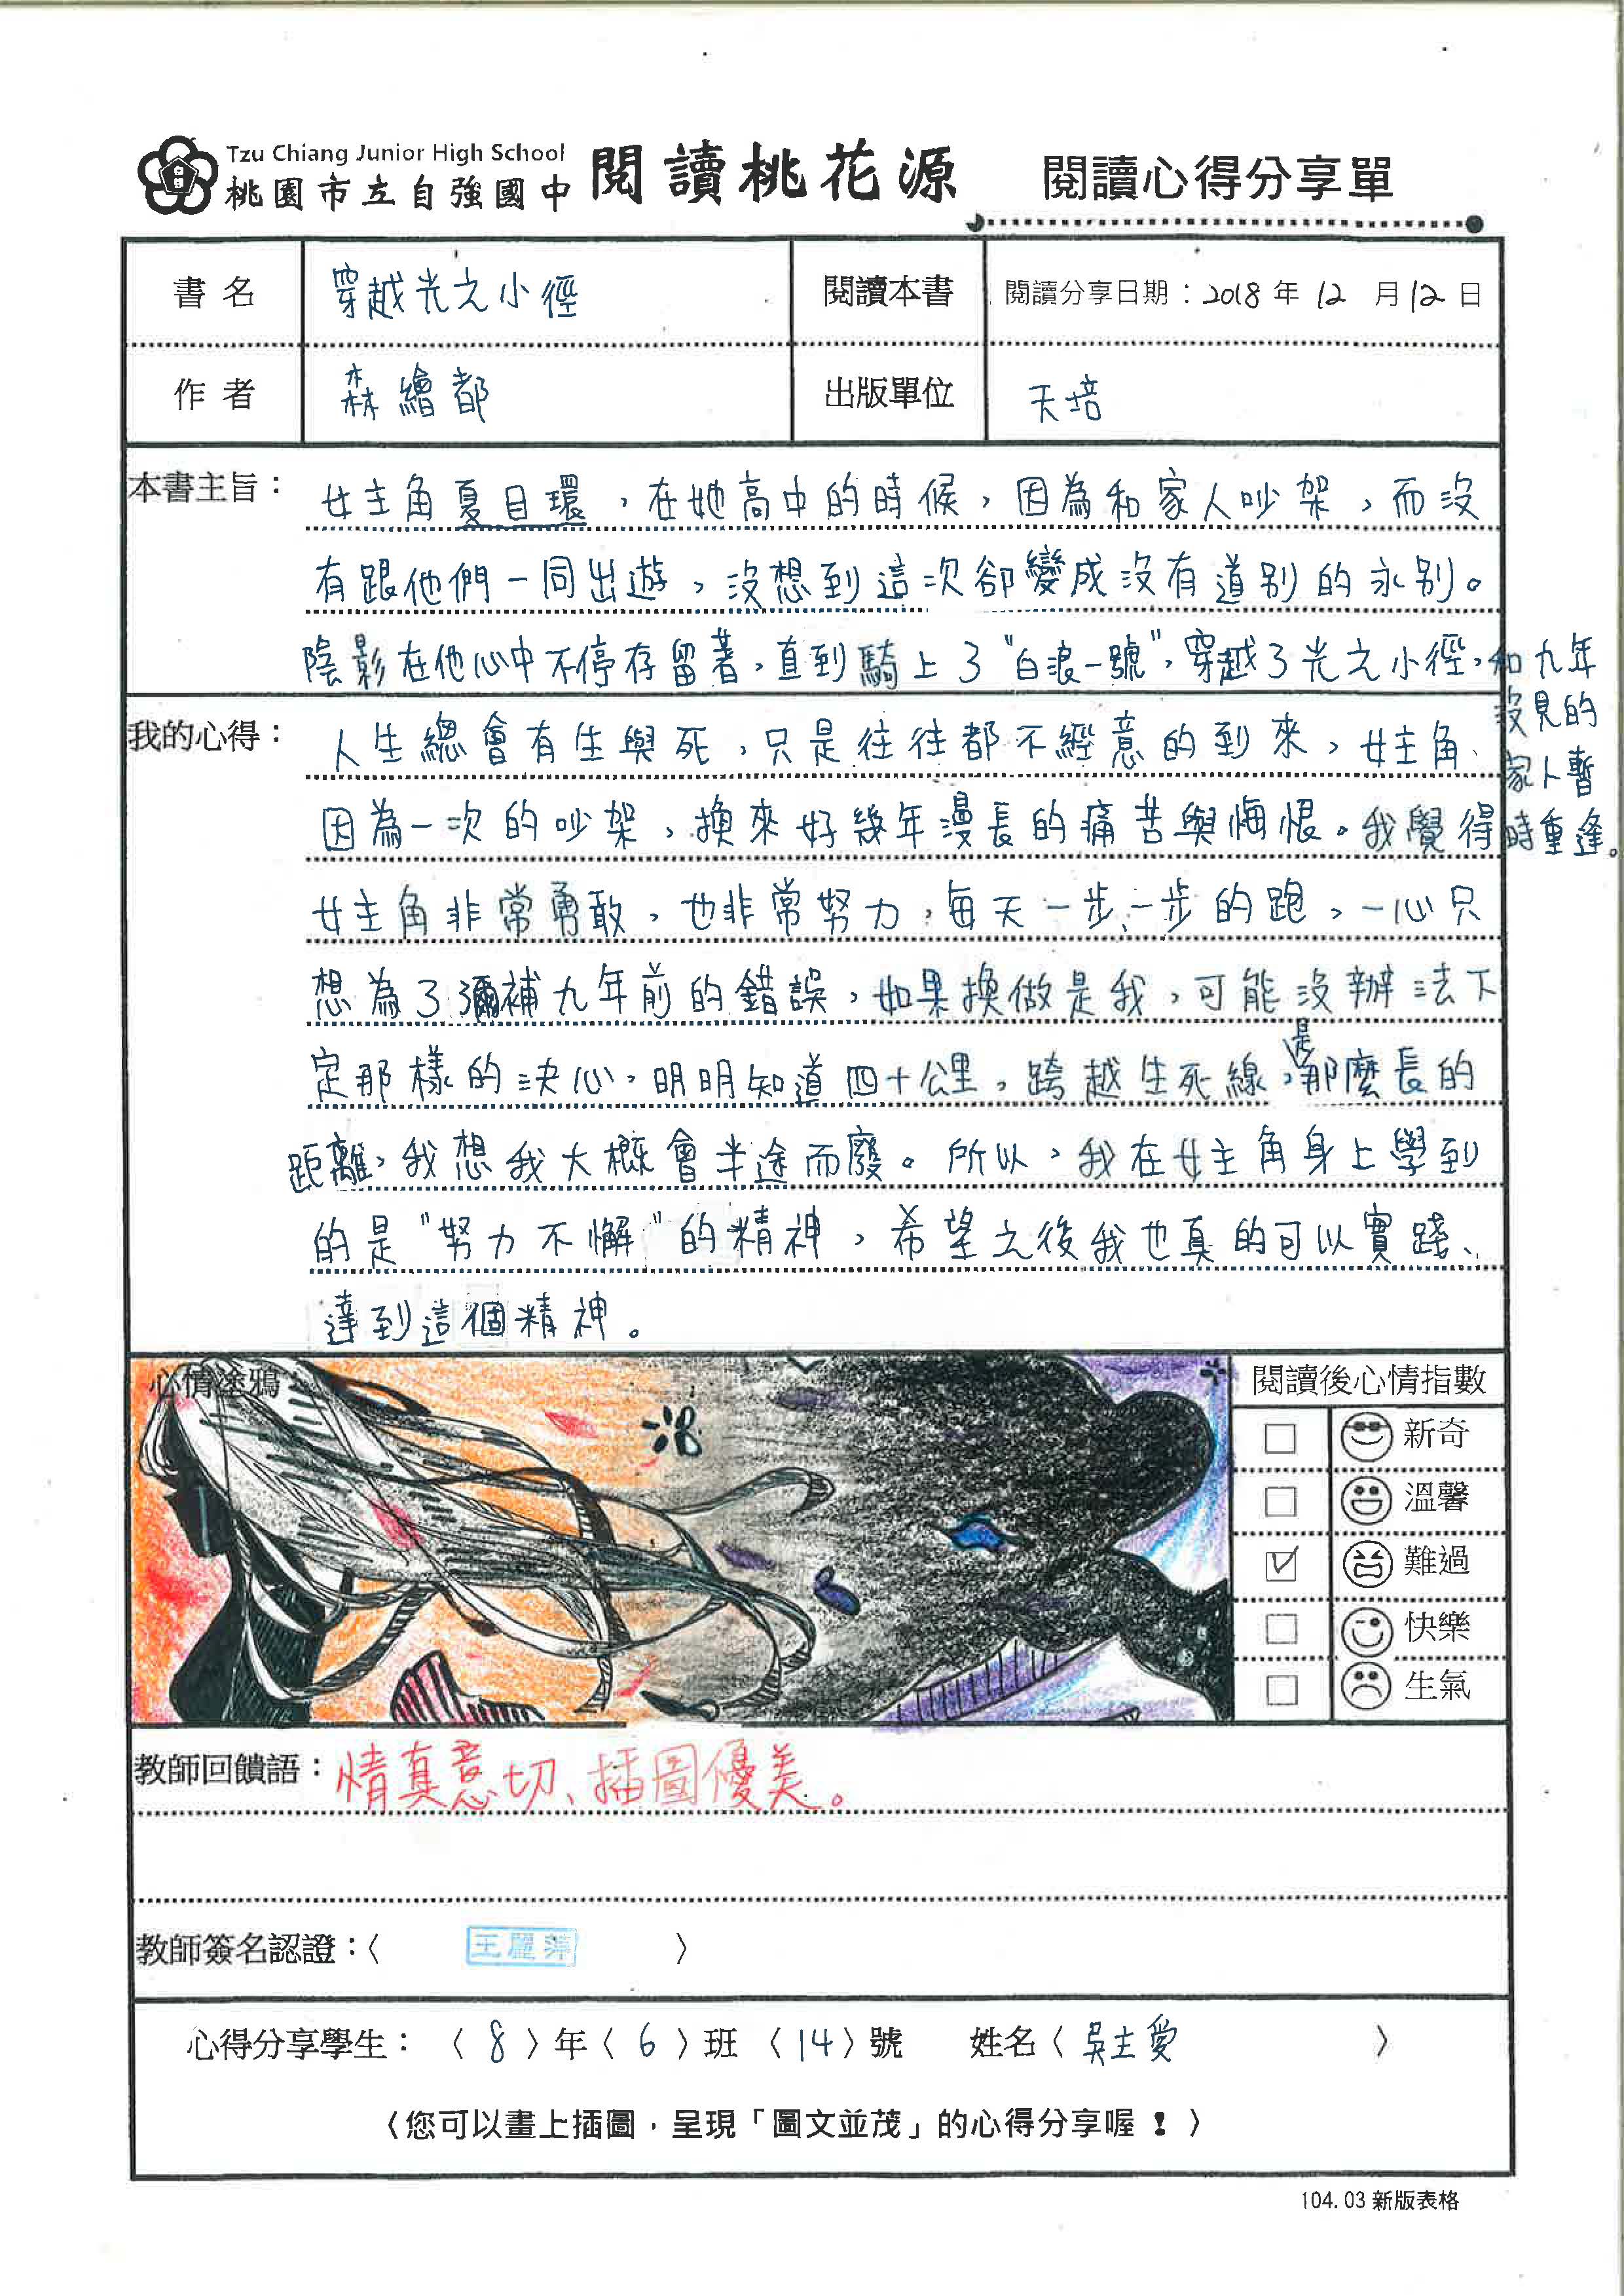 Tzu Chiang Junior High School
桃園市立自強國中 閱讀桃花源 閱讀心得分享單
書名 穿越光之小徑 閱讀本書 閱讀分享日期：2018年12月12日
作者 森繪都 出版單位 天培
本書主旨：女主角夏目環，在她高中的時候，因為和家人吵架，而沒
有跟他們一同出遊，沒想到這次卻變成沒有道別的永別。
陰影在他心中不停存留著，直到騎上了"白浪一號"，穿越了光之小徑，和九年
沒見的
家人暫
時重逢。
我的心得：人生總會有生與死，只是往往都不經意的到來，女主角、
因為一次的吵架，換來好幾年漫長的痛苦與悔恨。我覺得
女主角非常勇敢，也非常努力，每天一步一步的跑，一心只
想為了彌補九年前的錯誤，如果換做是我，可能沒辦法下
定那樣的決心，明明知道四十公里，跨越生死線，是那麼長的
距離，我想我大概會半途而廢。所以，我在女主角身上學到
的是"努力不懈"的精神，希望之後我也真的可以實踐、
達到這個精神。
心情塗鴉
閱讀後心情指數
新奇
溫馨
難過
快樂
生氣
教師回饋語：情真意切、插圖優美。
教師簽名認證：〈 王麗萍 〉
心得分享學生：〈8〉年〈6〉班〈14〉號 姓名〈吳主愛〉
〈您可以畫上插圖，呈現「圖文並茂」的心得分享喔！〉
104.03新版表格